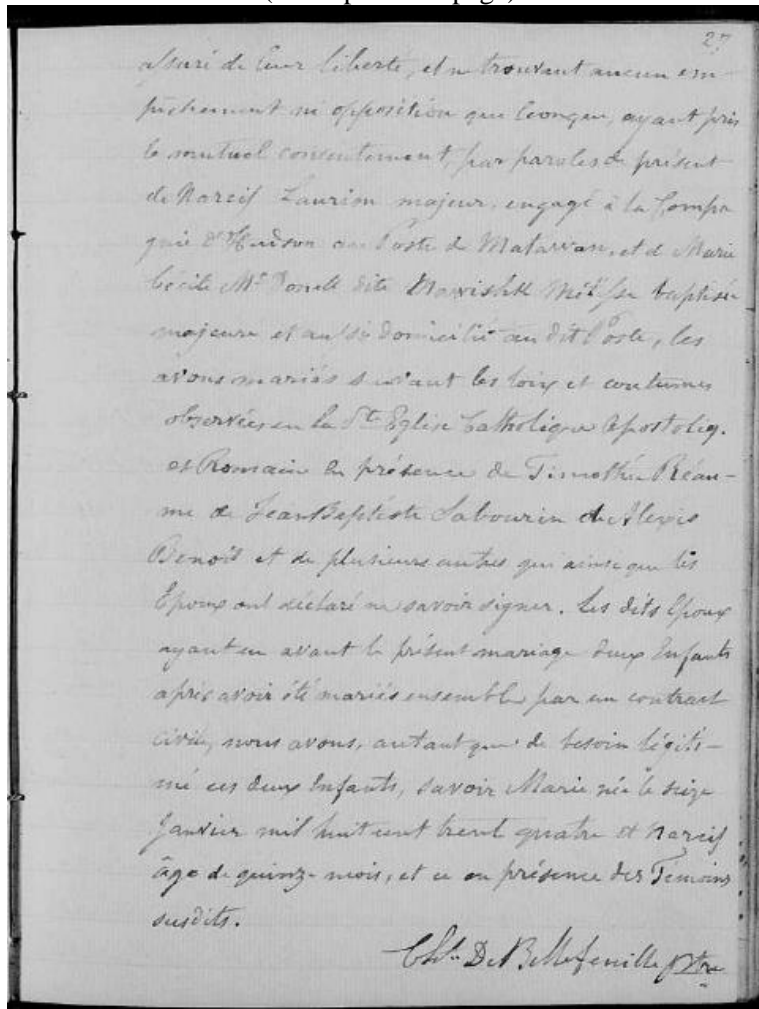 27
assuré de leur liberté, et ne trouvant aucun em-
pêchement ni opposition que lconque, ayant pris
le mutuel consentement, par paroles de présent
de Narcis Laurin majeur, engagé à la Compa
gnie d'Hudson au Poste de Matawan, et de Marie
Cécile Mc Donell dite Métisse baptisée
majeure et aussi domicilié au dit Poste, les
avons mariés suivant les loix et coutumes
observées en la Ste Eglise Catholique Apostoliq.
et Romain en présence de Timothée Réau-
me de Jean Baptiste Sabourin de Alexis
Benoit et de plusieurs autres qui ainsi que les
Epoux ont déclaré ne savoir signer. Les dits Epoux
ayant eu avant le présent mariage deux Enfants
après avoir été mariés ensemble par un contract
civil, nous avons, autant que de besoin légiti-
mé ces deux Enfants, savoir Marie née le seize
Janvier mil huit cent trent quatre et Narcis
âgé de quinze mois, et ce en présence des Temoins
susdits.
Chs. De Bellefeuille ptre